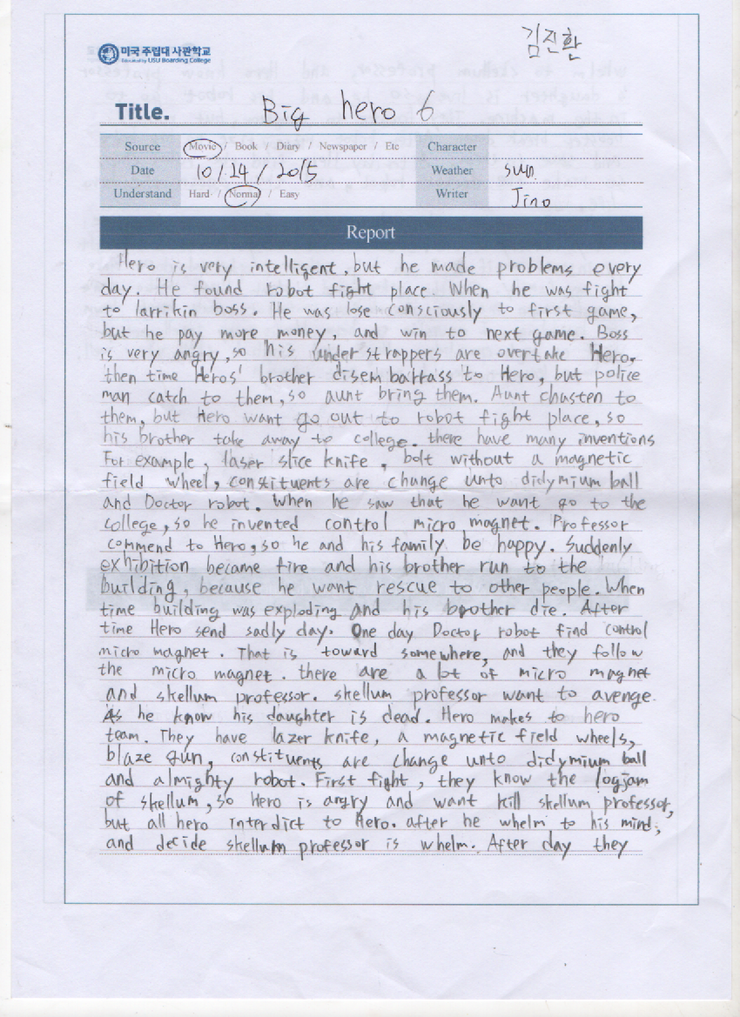 김진환
미국 주립대 사관학교
Educated by USU Boarding College
Title. Big hero 6
Source Movie / Book / Diary / Newspaper / Etc Character
Date 10 / 24 / 2015 Weather sun
Understand Hard / Normal / Easy Writer Jino
Report
Hero is very intelligent, but he made problems every
day. He found robot fight place. When he was fight
to larrikin boss. He was lose consciously to first game,
but he pay more money, and win to next game. Boss
is very angry, so his under strappers are overtake Hero.
then time Heros' brother disembarrass to Hero, but police
man catch to them, so aunt bring them. Aunt chasten to
them, but Hero want go out to robot fight place, so
his brother take away to college. there have many inventions
For example, laser slice knife, bolt without a magnetic
field wheel, constituents are change unto didymium ball
and Doctor robot. When he saw that he want go to the
college, so he invented control micro magnet. Professor
commend to Hero, so he and his family be happy. Suddenly
exhibition became fire and his brother run to the
building, because he want rescue to other people. When
time building was exploding and his brother die. After
time Hero send sadly day. One day Doctor robot find control
micro magnet. That is toward somewhere, and they follow
the micro magnet. there are a lot of micro magnet
and skellum professor. skellum professor want to avenge.
As he know his daughter is dead. Hero makes to hero
team. They have lazer knife, a magnetic field wheels,
blaze gun, constituents are change unto didymium ball
and almighty robot. First fight, they know the logjam
of skellum, so Hero is angry and want kill skellum professor,
but all hero interdict to Hero. after he whelm to his mind,
and decide skellum professor is whelm. After day they